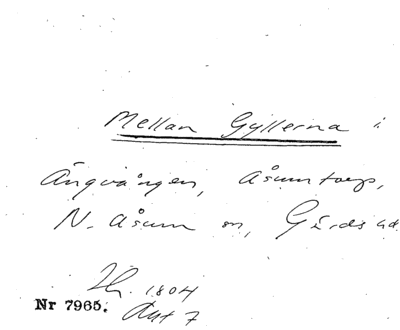 Mellan Gyllerna i
Ängvången, Åsumtorp,
N. Åsum sn, Gärds hd.
H. 1804
Nr 7965. Akt 7